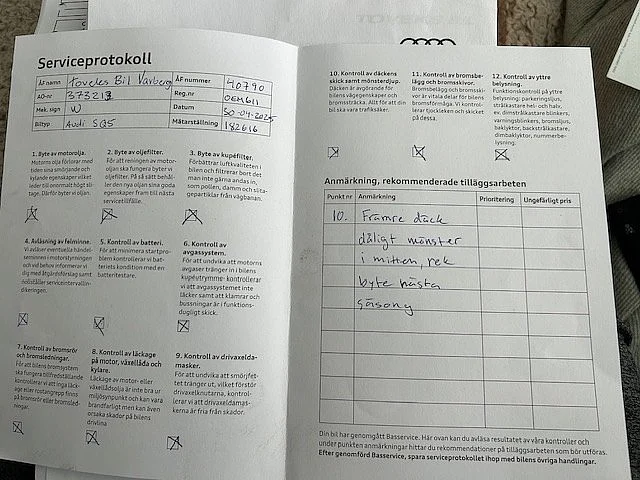 Serviceprotokoll
ÅF namn Toveks Bil Varberg ÅF nummer 40790
AO-nr 373213 Reg.nr OEM611
Mek. sign W Datum 30-04-2025
Biltyp Audi SQ5 Mätarställning 182616
1. Byte av motorolja.
Motorns olja förlorar med
tiden sina smörjande och
kylande egenskaper vilket
leder till onormalt högt sli-
tage. Därför byter vi oljan.
2. Byte av oljefilter.
För att reningen av motor-
oljan ska fungera byter vi
oljefilter. På så sätt behål-
ler den nya oljan sina goda
egenskaper fram till nästa
servicetillfälle.
3. Byte av kupéfilter.
Förbättrar luftkvaliteten i
bilen och filtrerar bort det
man inte gärna andas in,
som pollen, damm och slita-
gepartiklar från vägbanan.
4. Avläsning av felminne.
Vi avläser eventuella händel-
ser/minnen i motorstyrningen
och vid behov informerar vi
dig med åtgärdsförslag samt
nollställer serviceintervallin-
dikeringen.
5. Kontroll av batteri.
För att minimera startpro-
blem kontrollerar vi bat-
teriets kondition med en
batteritestare.
6. Kontroll av
avgassystem.
För att undvika att motorns
avgaser tränger in i bilens
kupéutrymme- kontrollerar
vi att avgassystemet inte
läcker samt att klamrar och
bussningar är i funktions-
dugligt skick.
7. Kontroll av bromsrör
och bromsledningar.
För att bilens bromssystem
ska fungera tillfredställande
kontrollerar vi att inga läck-
age eller rostangrepp finns
på bromsrör eller bromsled-
ningar.
8. Kontroll av läckage
på motor, växellåda och
kylare.
Läckage av motor- eller
växellådsolja är inte bra ur
miljösynpunkt och kan vara
brandfarligt men kan även
orsaka skador på bilens
drivlina
9. Kontroll av drivaxelda-
masker.
För att undvika att smörjfet-
tet tränger ut, vilket förstör
drivaxelknutarna, kontrol-
lerar vi att drivaxeldamas-
kerna är fria från skador.
10. Kontroll av däckens
skick samt mönsterdjup.
Däcken är avgörande för
bilens vägegenskaper och
bromssträcka. Allt för att din
bil ska vara trafiksäker.
11. Kontroll av bromsbe-
lägg och bromsskivor.
Bromsbelägg och bromsski-
vor är vitala delar för bilens
bromsförmåga. Vi kontrol-
lerar tjockleken och skicket
på dessa.
12. Kontroll av yttre
belysning.
Funktionskontroll på yttre
belysning: parkeringsljus,
strålkastare hel- och halv-
ev. dimstrålkastare blinkers,
varningsblinkers, bromsljus,
baklyktor, backstrålkastare,
dimbaklyktor, nummerbe-
lysning.
Anmärkning, rekommenderade tilläggsarbeten
Punkt nr Anmärkning Prioritering Ungefärligt pris
10. Främre däck
dåligt mönster
i mitten, rek
byte nästa
säsong
Din bil har genomgått Basservice. Här ovan kan du avläsa resultatet av våra kontroller och
under punkten anmärkningar hittar du rekommendationer på tilläggsarbeten som bör utföras.
Efter genomförd Basservice, spara serviceprotokollet ihop med bilens övriga handlingar.